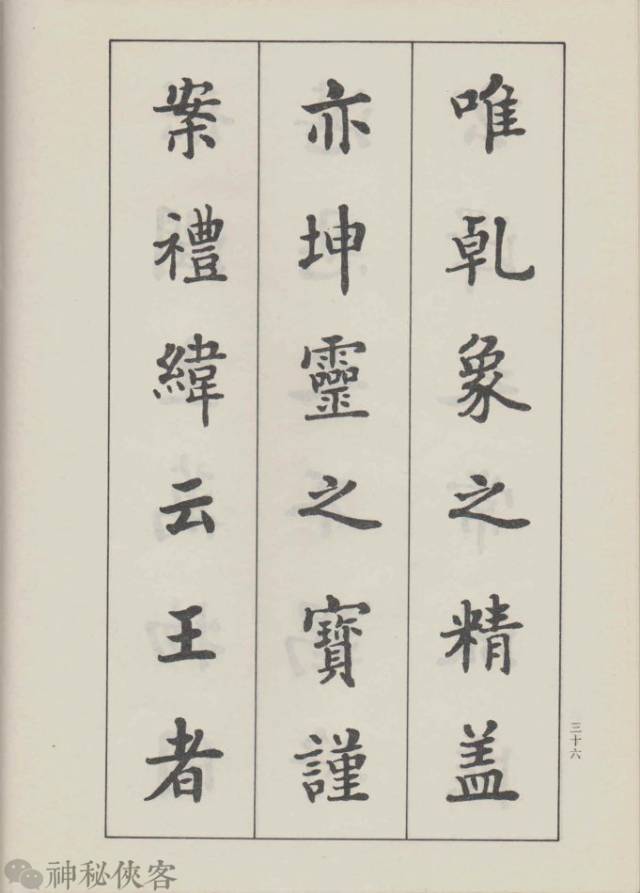 唯乹象之精盖
亦坤靈之寶謹
案禮緯云王者
三十六
神秘俠客